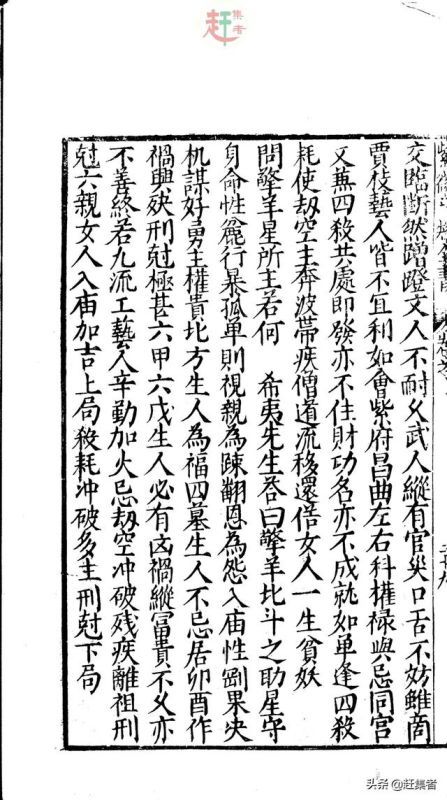 赶集者
交臨斷然蹭蹬文人不耐久武人縱有官災口舌不妨雖商
賈技藝人皆不宜利如會紫府昌曲左右科權祿與忌同宮
又蕪四殺共處即發亦不住財功名亦不成就如单逢四殺
耗使刼空主奔波帶疾僧道流移還俗女人一生貧妖
問擎羊星所主若何 希夷先生荅曰擎羊北斗之助星守
身命性麄行暴孤單則視親為踈翻恩為怨入庙性剛果决
机謀好勇主權貴北方生人為福四墓生人不忌居卯酉作
禍興殃刑尅極甚六甲六戊生人必有凶禍縱冨貴不久亦
不善終若九流工藝人辛勤加火忌刼空冲破残疾離祖刑
尅六親女人入庙加吉上局殺耗冲破多主刑尅下局
头条@赶集者